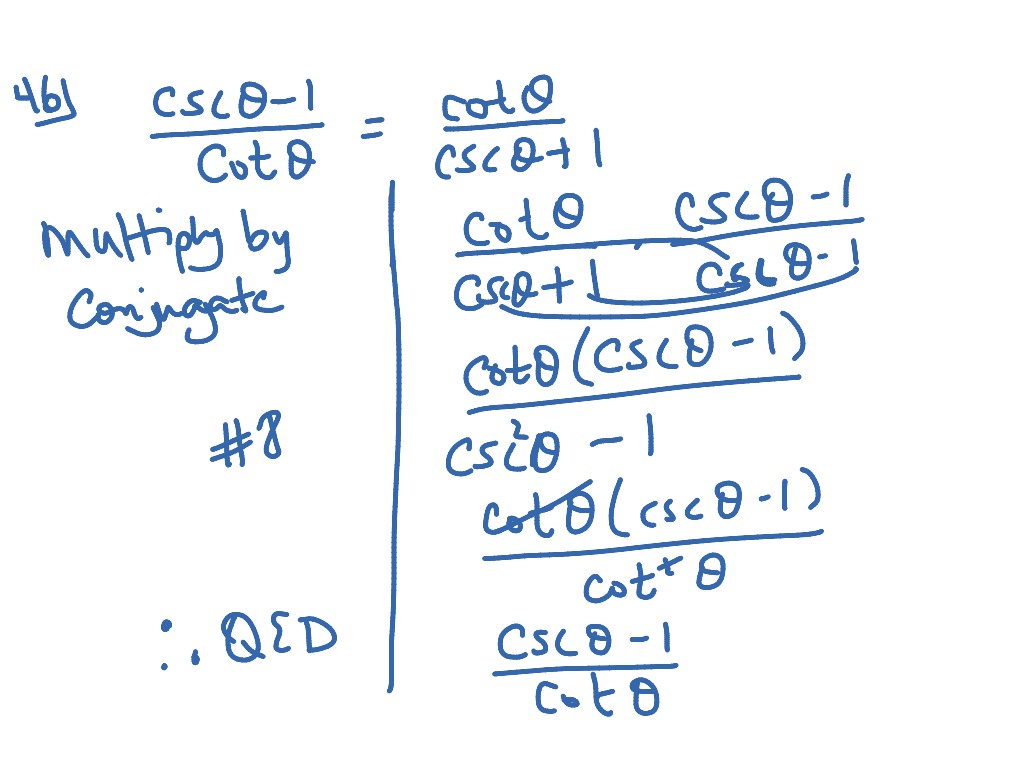 46) cscθ-1 / cotθ = cotθ / cscθ+1
Multiply by
Conjugate
cotθ / cscθ+1 · cscθ-1 / cscθ-1
cotθ(cscθ-1) / csc²θ - 1
#8
cotθ(cscθ-1) / cot²θ
cscθ-1 / cotθ
∴ QED